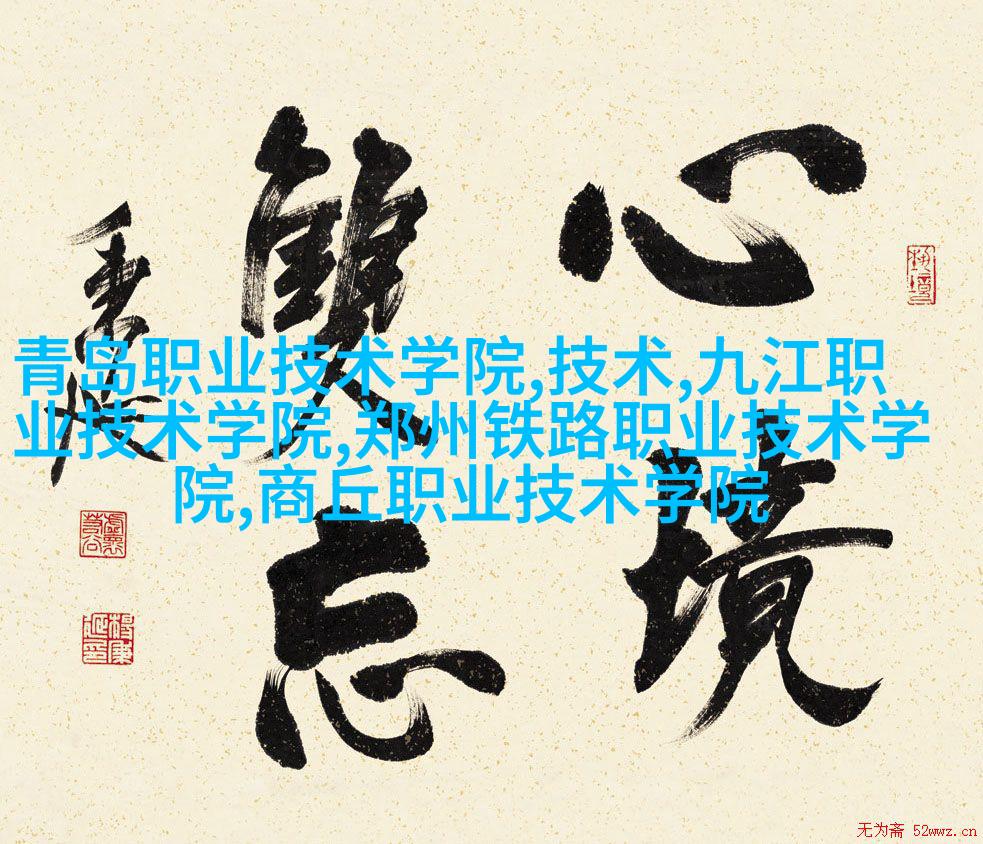 心境
雙忘
青岛职业技术学院,技术,九江职
业技术学院,郑州铁路职业技术学
院,商丘职业技术学院
无为斋 52wwz.cn